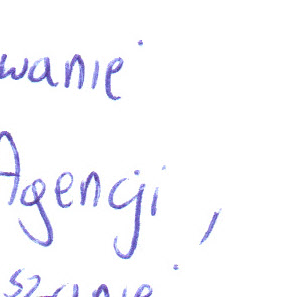 wanie
Agencji,
szanie